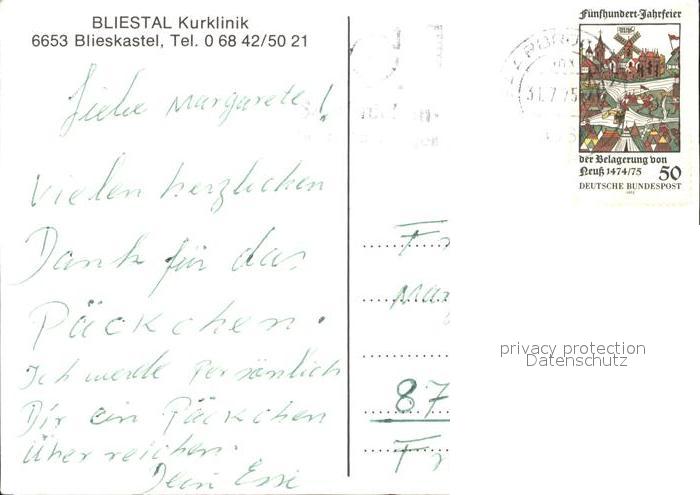 BLIESTAL Kurklinik
6653 Blieskastel, Tel. 0 68 42/50 21
Liebe Margarete!
Vielen herzlichen
Dank für das
Päckchen.
Ich werde Persönlich
Dir ein Päckchen
Überreichen.
Dein
Fünfhundert-Jahrfeier
der Belagerung von
Neuß 1474/75
50
DEUTSCHE BUNDESPOST
31.7.75
Fr
Mar
87
Fr
privacy protection
Datenschutz